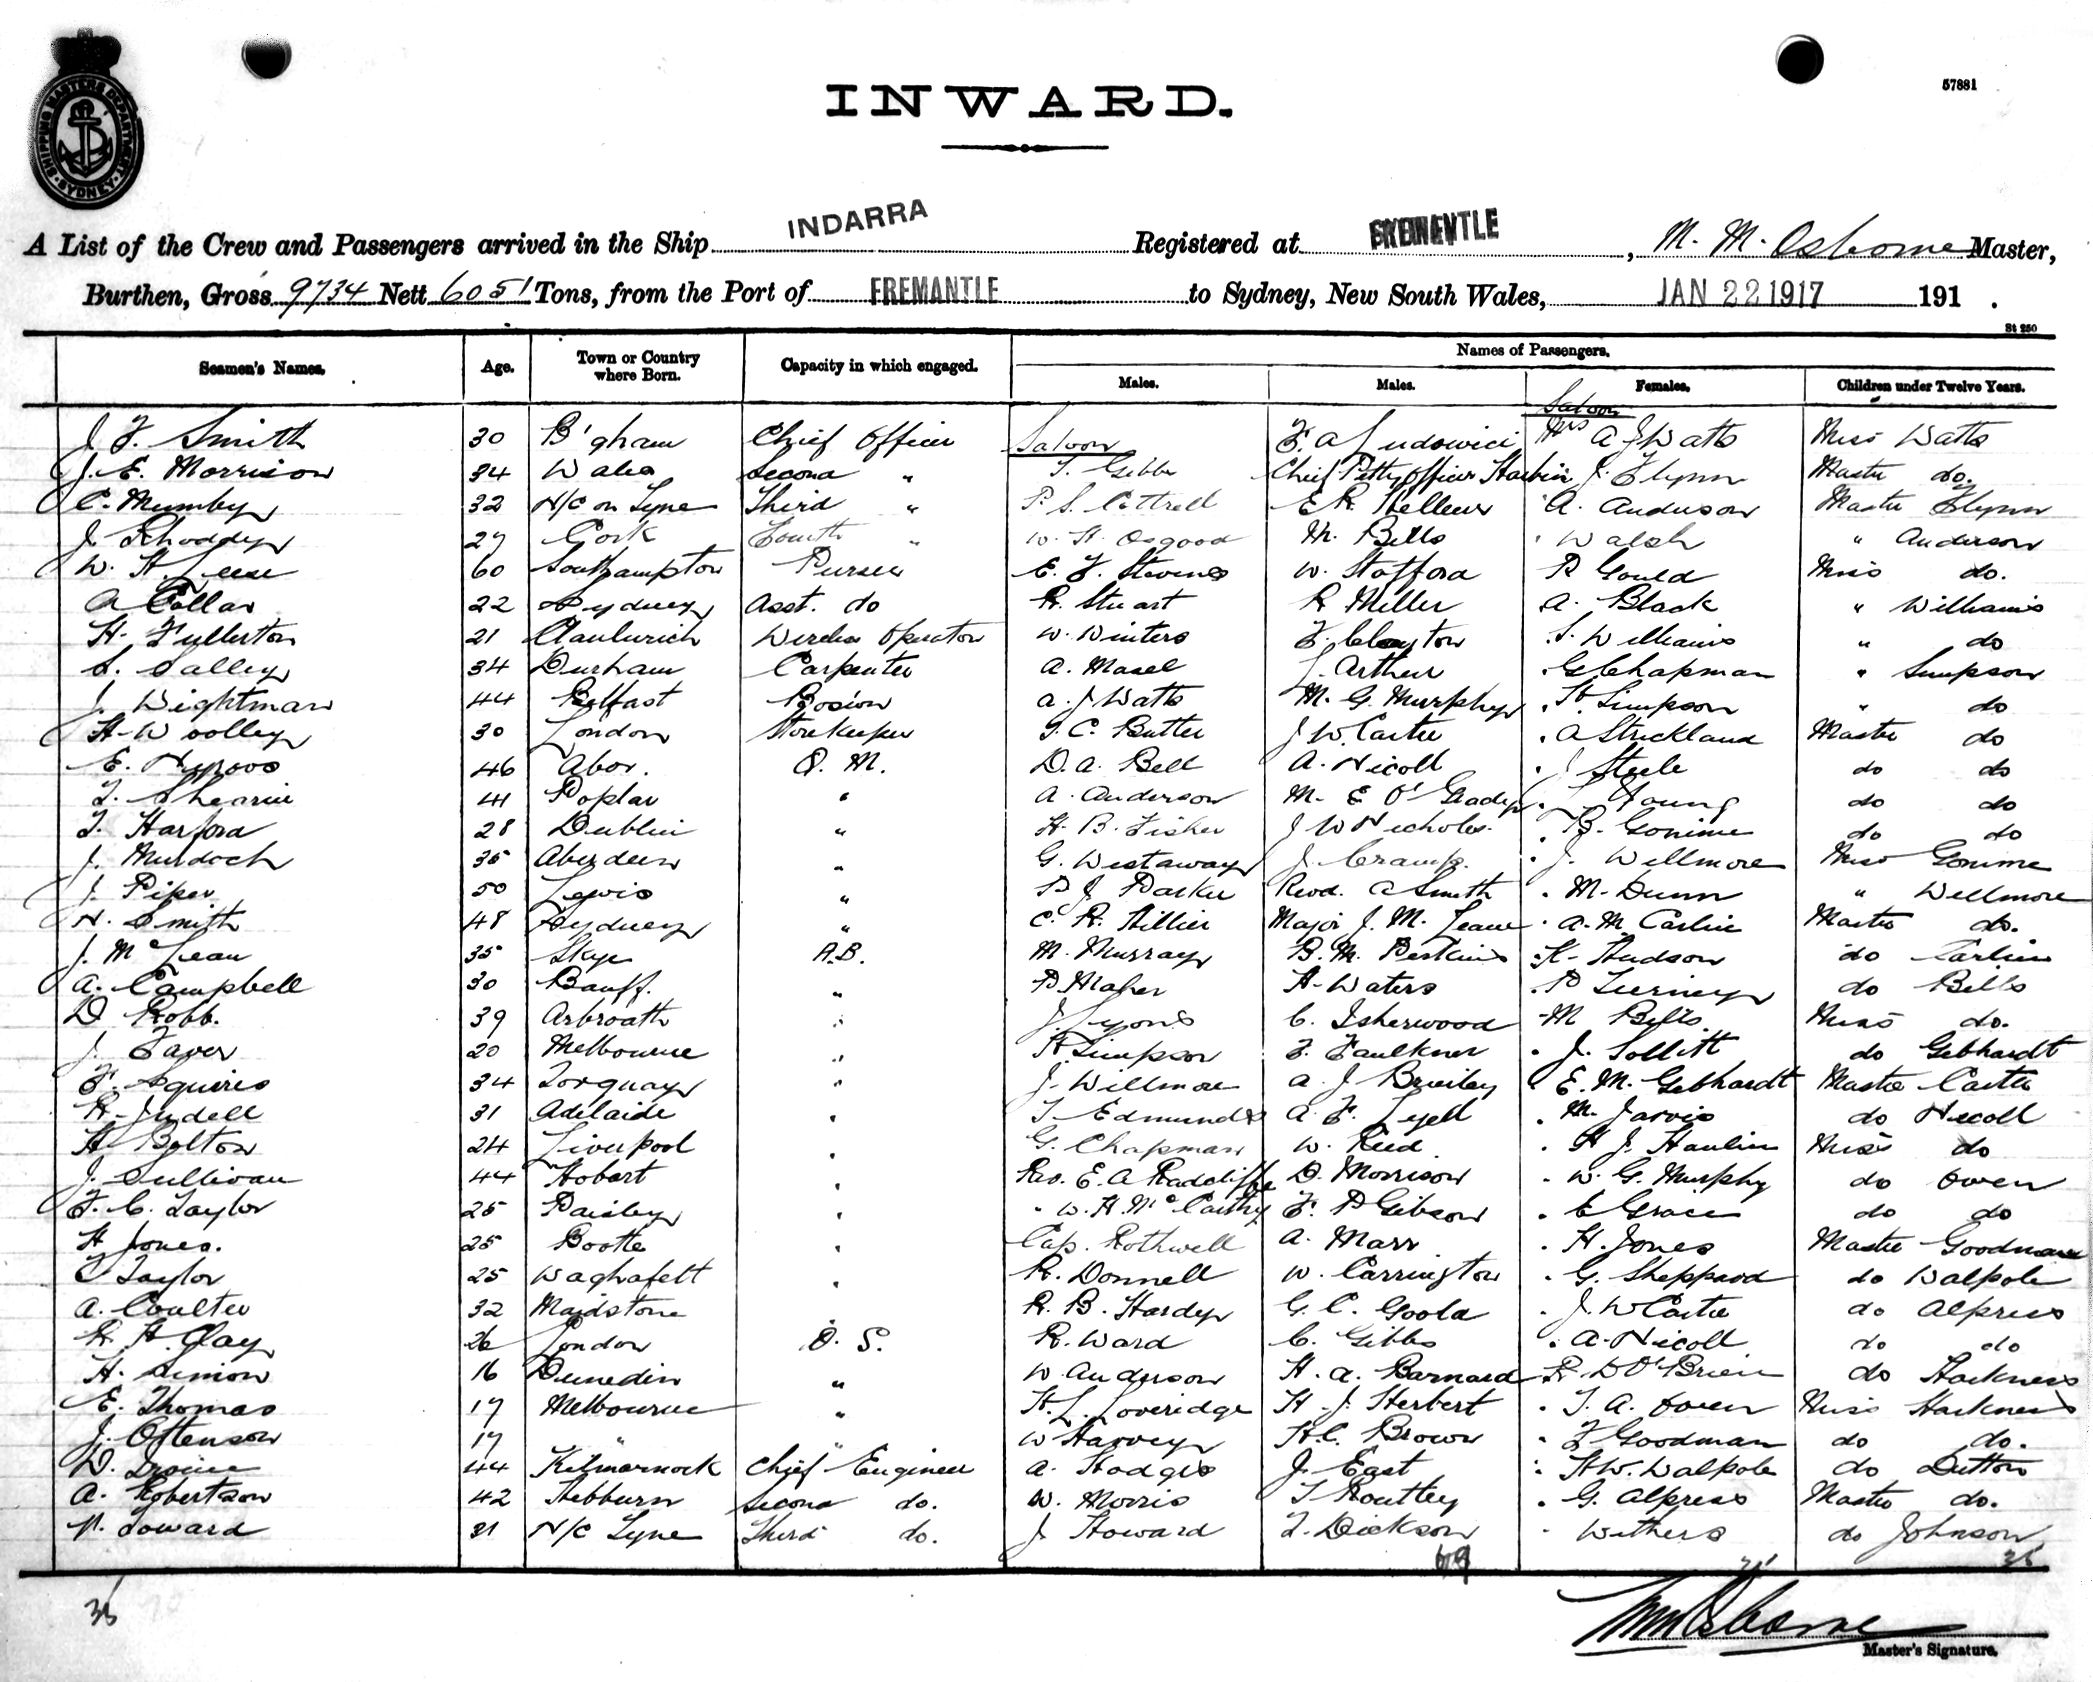 SHIPPING MASTERS DEPARTMENT
SYDNEY
57881
INWARD.
A List of the Crew and Passengers arrived in the Ship INDARRA Registered at , M. M. Osborne Master,
Burthen, Gross 9734 Nett 6051 Tons, from the Port of FREMANTLE to Sydney, New South Wales, JAN 22 1917 191 .
St 250
Seamen's Names. Age. Town or Country where Born. Capacity in which engaged. Names of Passengers.
Males. Males. Females. Children under Twelve Years.
Saloon
J. F. Smith 30 B'gham Chief Officer Saloon F. A Ludowici Mrs A J Watts Miss Watts
J. E. Morrison 34 Wales Second " T. Gibbs Chief Petty Officer J. Flynn Master do.
C. Mumby 32 N/C on Tyne Third " P. S. Cottrell E R Helleur " A. Anderson Master Flynn
J. Rhoddy 27 Cork Fourth " W. H. Osgood M. Bills " Walsh " Anderson
W. H. Leese 60 Southampton Purser E. F. Stevens W. Stafford R Gould Miss do.
A Collar 22 Sydney Asst. do R. Stuart R Miller A. Black " Williams
H. Fullerton 21 Wireless Operator W. Winters F. Clayton S. Williams " do
S. Salley 34 Durham Carpenter A. Masel L Arthur G Chapman " Simpson
J. Wightman 44 Belfast Bosion A. J Watts M. G. Murphy H. Simpson " do
H. Woolley 30 London Storekeeper G. C. Butler J W. Carter A Strickland Master do
E. 46 Abor. Q. M. D. A. Bell A. Nicoll J Steele do do
T. Shearin 41 Poplar " A. Anderson M. E O'Grady L Young do do
T. Harford 28 Dublin " H. B. Fisher J W Nicholes. B. Gonime do do
J. Murdoch 35 Aberdeen " G. Westaway J. Cramp. J. Willmore Miss Gonime
J. Piper 50 Lewis " P J Parker Revd. C Smith M. Dunn " Willmore
N. Smith 48 Sydney " C. R. Hillier Major J. M. Leane A. M. Carlin Master do.
J. McLean 35 Skye A.B. M. Murray B. M. Perkins K. Hudson do Carlin
A. Campbell 30 Banff. " P Maher H. Waters P Tierney do Bills
D Robb. 39 Arbroath " J. Lyons C. Isherwood M Bills Miss do.
J. Faver 20 Melbourne " H. Simpson F. Faulkner J. Sollitt do Gebhardt
F. Squires 34 Torquay " J. Willmore A. J Brierley E. M. Gebhardt Master Carter
R. Judell 31 Adelaide " T Edmunds A. F. Lyell M. Jarvis do Nicoll
H. Bolton 24 Liverpool " G. Chapman W. Reid H J. Hanlin Miss do
J. Sullivan 44 Hobart " Rev. E. A Radcliffe D. Morrison W. G. Murphy do Owen
F. C. Taylor 25 Paisley " " W. H. McCarthy F. P Gibson E Grace do do
H Jones. 25 Bootle " Cap. Rothwell A. Marr H. Jones Master Goodman
T Taylor 25 Waghafelt " R. Donnell W. Carrington G. Sheppard do Walpole
A. Coulter 32 Maidstone R. B. Hardy G. C. Goold J. W Carter do Alpress
R. H. Clay 26 London O. S. R. Ward C. Gibbs A. Nicoll do do
H. Simon 16 Dunedin " W Anderson H. A. Barnard R. D O'Brien do Harkness
E. Thomas 17 Melbourne " H. L. Loveridge H. J. Herbert T. A. Owen Miss Harkness
J. Ottenson 17 " " W Harvey H. C. Brown F Goodman do do.
D. 44 Kilmarnock Chief Engineer A. Hodges J. East H W. Walpole do Ditton
A. Robertson 42 Hebburn Second do. W. Morris T Routley G. Alpress Master do.
N. Toward 31 N/C Tyne Third do. J Howard T. Dickson Withers do Johnson
69 35 35
35
Master's Signature.